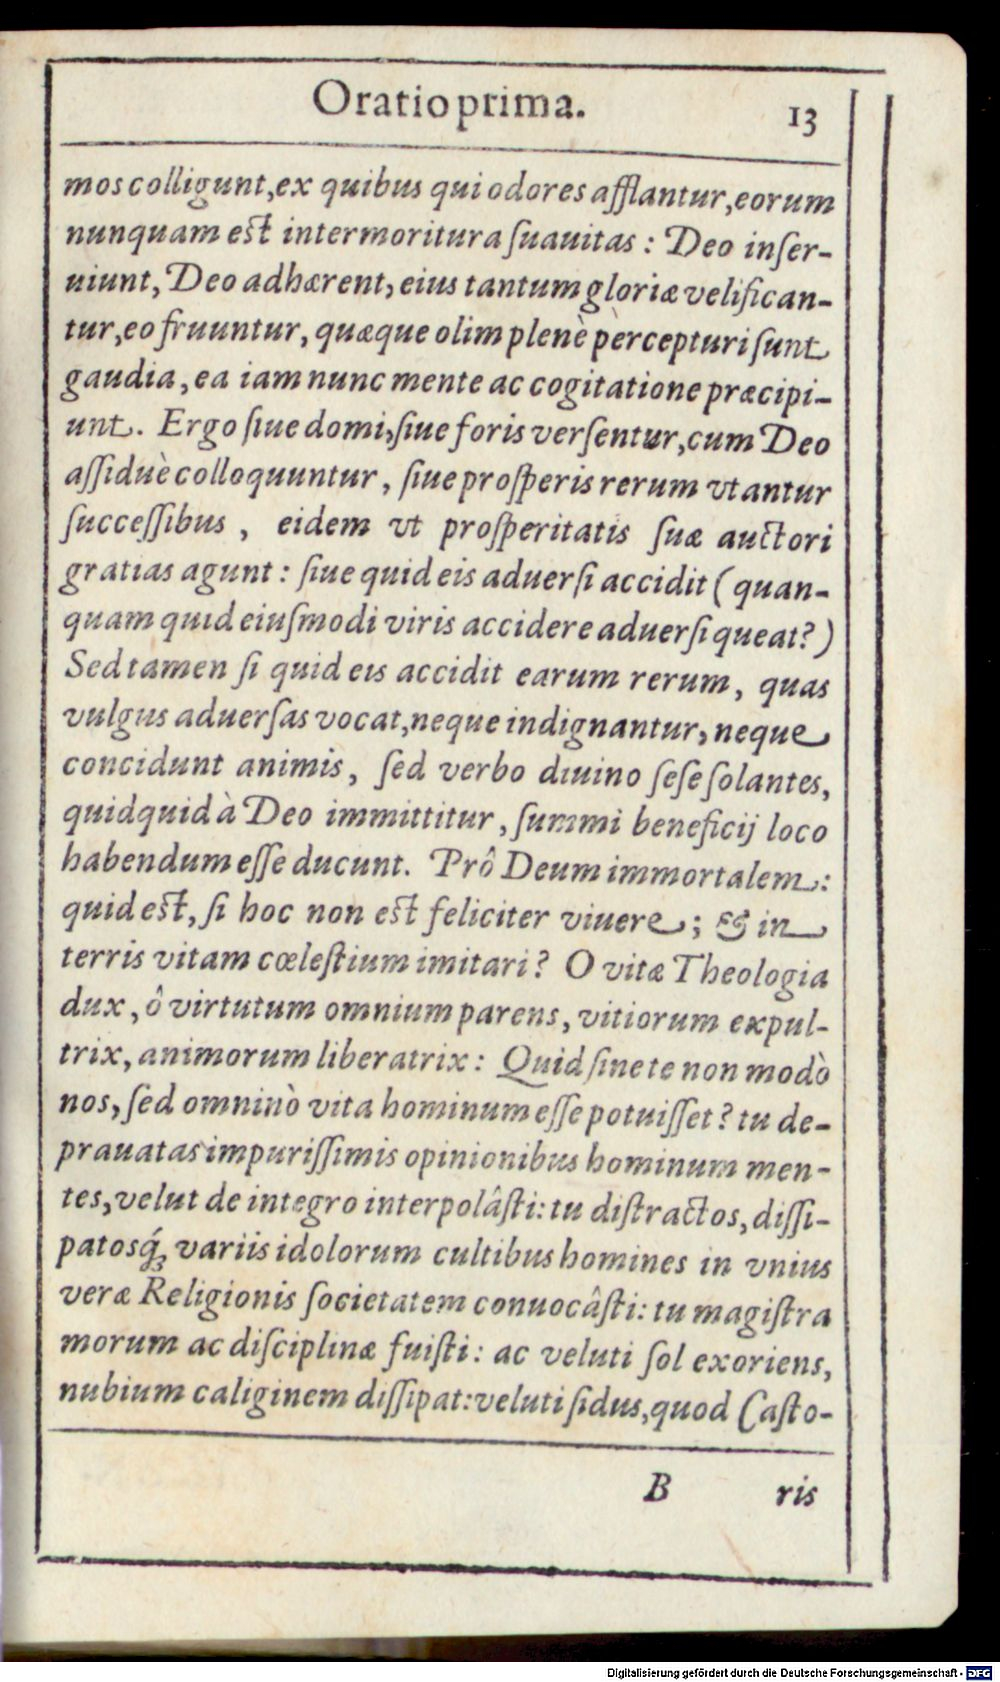 Oratio prima. 13
mos colligunt, ex quibus qui odores afflantur, eorum
nunquam est intermoritura ſuauitas: Deo inſer-
uiunt, Deo adhærent, eius tantum gloriæ velifican-
tur, eo fruuntur, quæque olim plenè percepturi ſunt
gaudia, ea iam nunc mente ac cogitatione præcipi-
unt. Ergo ſiue domi, ſiue foris verſentur, cum Deo
aſſiduè colloquuntur, ſiue proſperis rerum vtantur
ſucceſſibus, eidem vt proſperitatis ſuæ auctori
gratias agunt: ſiue quid eis aduerſi accidit (quan-
quam quid eiuſmodi viris accidere aduerſi queat?)
Sed tamen ſi quid eis accidit earum rerum, quas
vulgus aduerſas vocat, neque indignantur, neque
concidunt animis, ſed verbo diuino ſeſe ſolantes,
quidquid à Deo immittitur, ſummi beneficij loco
habendum eſſe ducunt. Prô Deum immortalem:
quid est, ſi hoc non est feliciter viuere; & in
terris vitam cœleſtium imitari? O vitæ Theologia
dux, ô virtutum omnium parens, vitiorum expul-
trix, animorum liberatrix: Quid ſine te non modò
nos, ſed omninò vita hominum eſſe potuiſſet? tu de-
prauatas impuriſſimis opinionibus hominum men-
tes, velut de integro interpolâſti: tu diſtractos, diſſi-
patosq́; variis idolorum cultibus homines in vnius
veræ Religionis ſocietatem conuocâſti: tu magiſtra
morum ac diſciplinæ fuiſti: ac veluti ſol exoriens,
nubium caliginem diſſipat: veluti ſidus, quod Caſto-
B ris
Digitalisierung gefördert durch die Deutsche Forschungsgemeinschaft - DFG